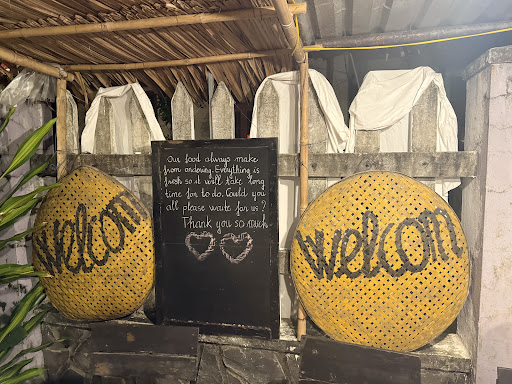 our food always make
from ondering. Everything is
fresh so it will take long
time for to do. Could you
all please waite for us ?
Thank you so much
welcom
welcom